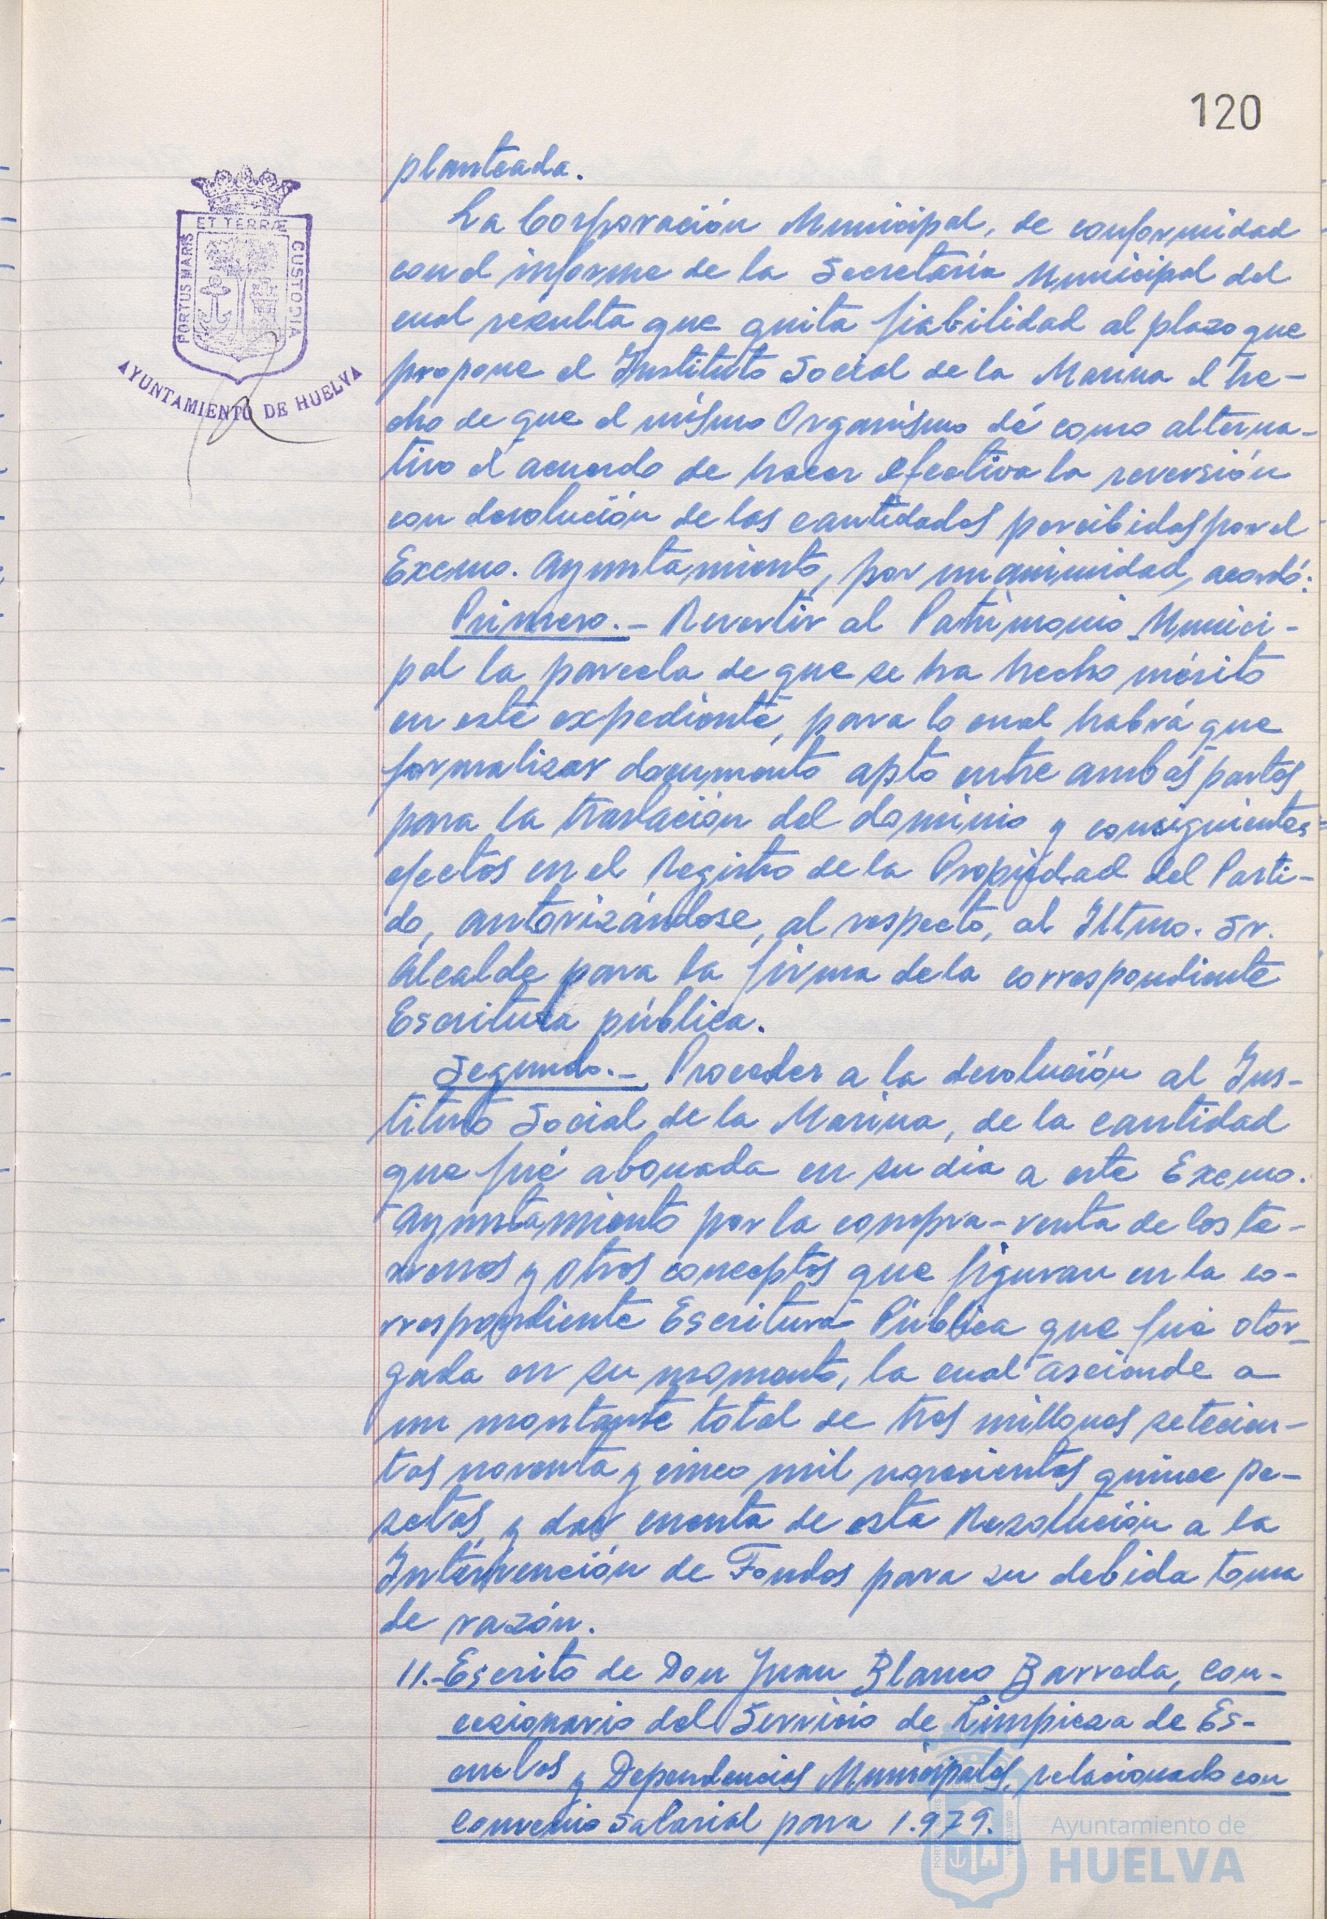 120
planteada.
La Corporación Municipal, de conformidad
con el informe de la Secretaría Municipal del
cual resulta que quita fiabilidad al plazo que
propone el Instituto Social de la Marina el he-
cho de que el mísmo Organísmo dé como alterna-
tiva el acuerdo de hacer efectiva la reversión
con devolución de las cantidades percibidas por el
Excmo. Ayuntamiento, por unanimidad, acordó:
Primero.- Revertir al Patrimonio Munici-
pal la parcela de que se ha hecho mérito
en este expediente, para lo cual habrá que
formalizar documento apto entre ambas partes
para la traslación del dominio y consiguientes
efectos en el Registro de la Propiedad del Parti-
do, autorizándose, al respecto, al Iltmo. Sr.
Alcalde para la firma de la correspondiente
Escritura pública.
Segundo.- Proceder a la devolución al Ins-
tituto Social de la Marina, de la cantidad
que fué abonada en su dia a este Excmo.
Ayuntamiento por la compra-venta de los te-
rrenos y otros conceptos que figuran en la co-
rrespondiente Escritura Pública que fué otor-
gada en su momento, la cual asciende a
un montante total de tres millones setecien-
tas noventa y cinco mil novecientas quince pe-
setas, y dar cuenta de esta Resolución a la
Intervención de Fondos para su debida toma
de razón.
11.- Escrito de Don Juan Blanco Barreda, con-
cesionario del Servicio de Limpieza de Es-
cuelas y Dependencias Municipales, relacionado con
Convenio Salarial para 1.979.
PORTUS MARIS ET TERRÆ CUSTODIA
AYUNTAMIENTO DE HUELVA
Ayuntamiento de
HUELVA